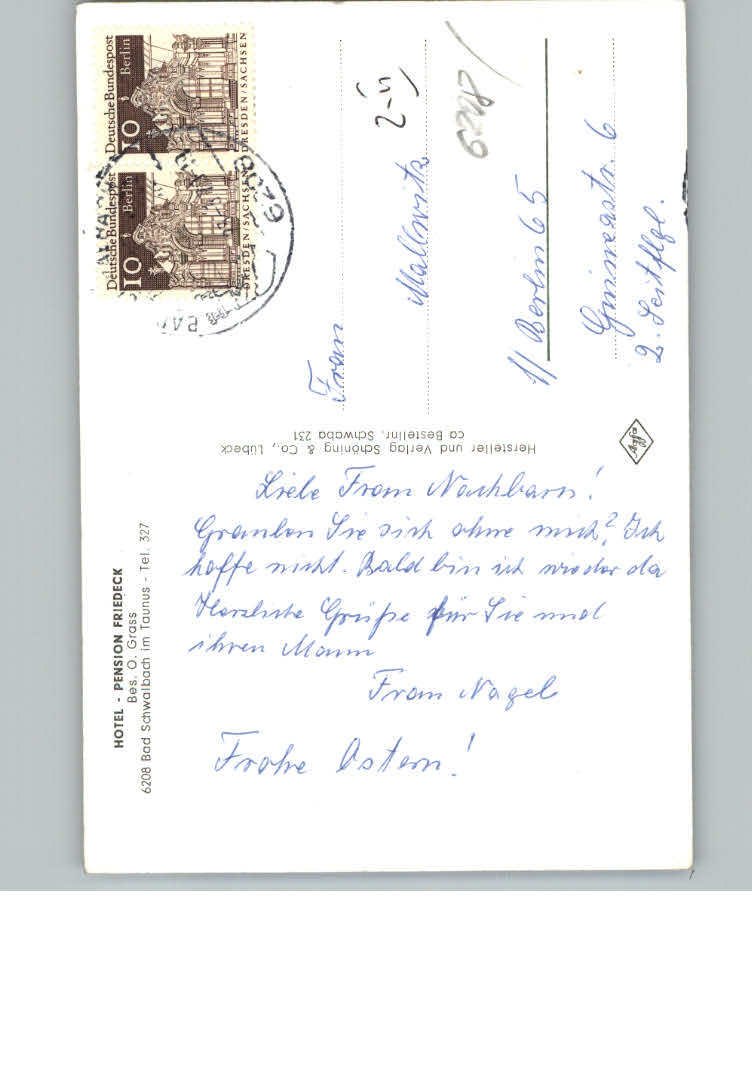 Liebe Frau Nachbarn!
Graulen Sie sich ohne mich? Ich
hoffe nicht. Bald bin ich wieder da
Herzliche Grüße für Sie und
ihren Mann
Frau Nagel
Frohe Ostern!
HOTEL - PENSION FRIEDECK
Bes. O. Grass
6208 Bad Schwalbach im Taunus - Tel. 327
Hersteller und Verlag Schöning & Co., Lübeck
ca Bestellnr. Schwaba 231
Agfa
Deutsche Bundespost
Berlin
10
DRESDEN/SACHSEN
Deutsche Bundespost
Berlin
10
DRESDEN/SACHSEN
6208
Frau
Mallwitz
1/ Berlin 65
Guineastr. 6
2. Seitflgl.